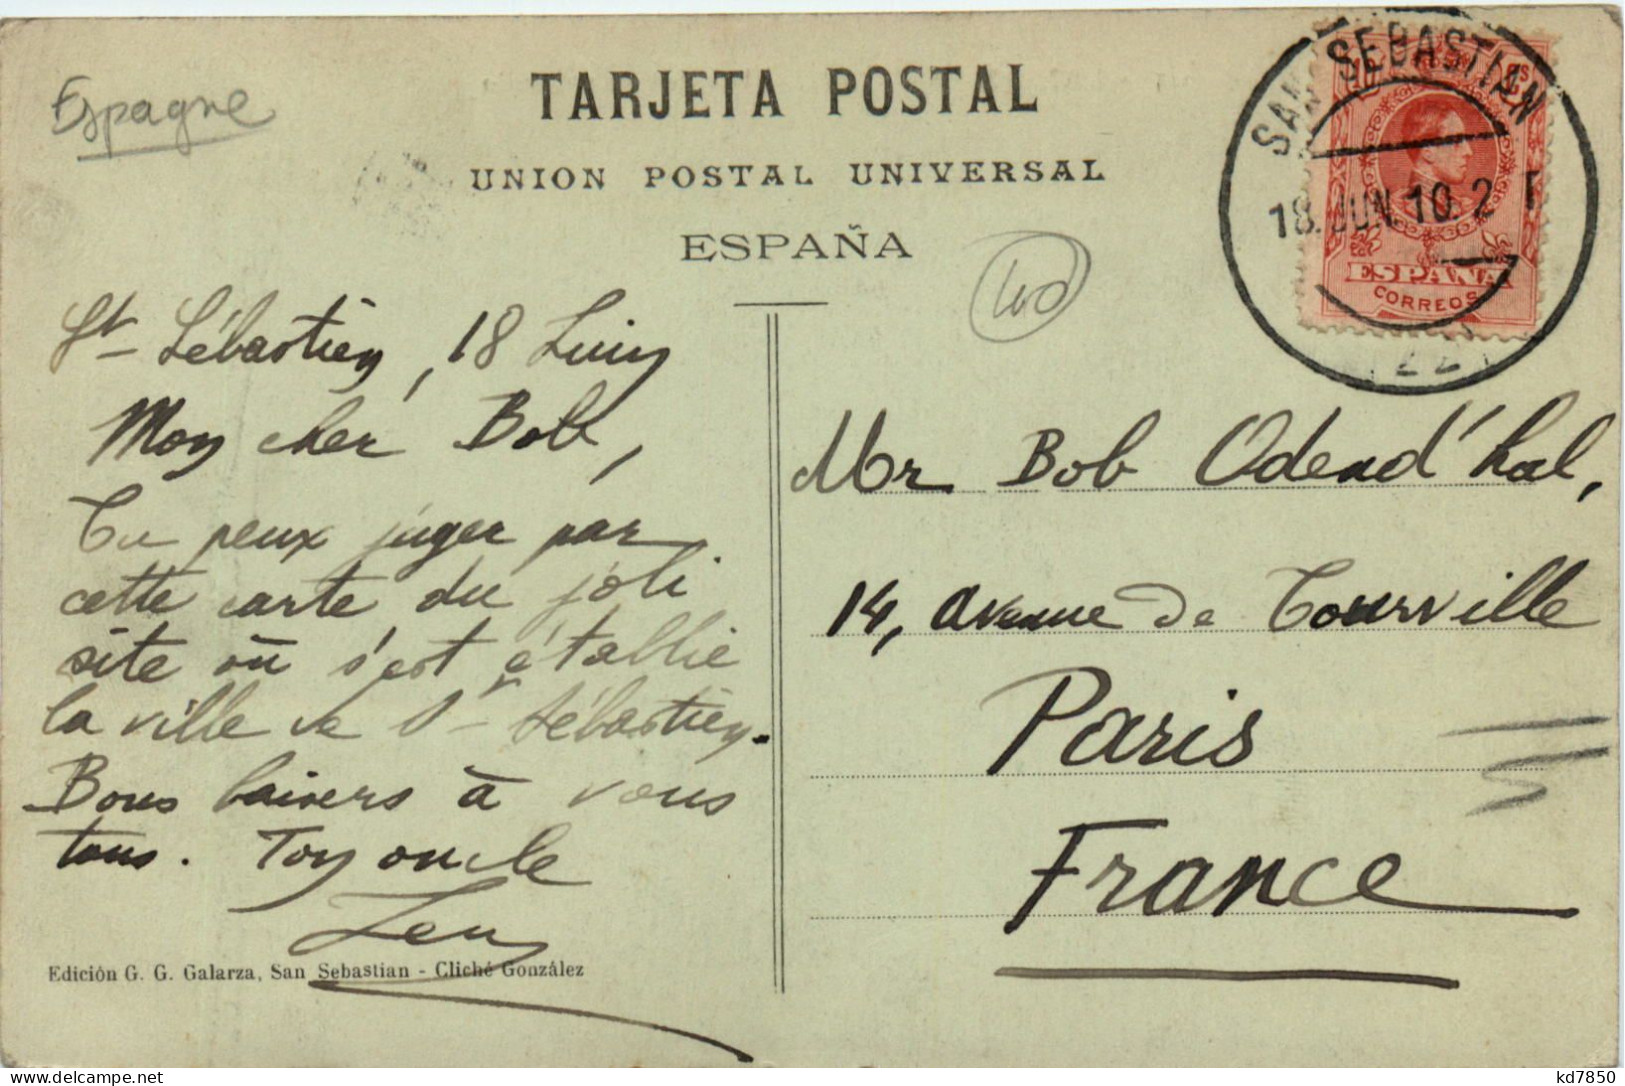 Espagne
TARJETA POSTAL
UNION POSTAL UNIVERSAL
ESPAÑA
SAN SEBASTIAN
18.JUN.10.2
ESPAÑA
CORREOS
St-Sébastien, 18 Juin
Mon cher Bob,
Tu peux juger par
cette carte du joli
site où s'est établie
la ville de St-Sébastien.
Bons baisers à vous
tous. Ton oncle
Mr Bob Odend'hal,
14, avenue de Tourville
Paris
France
Edición G. G. Galarza, San Sebastian - Cliché González
kd7850